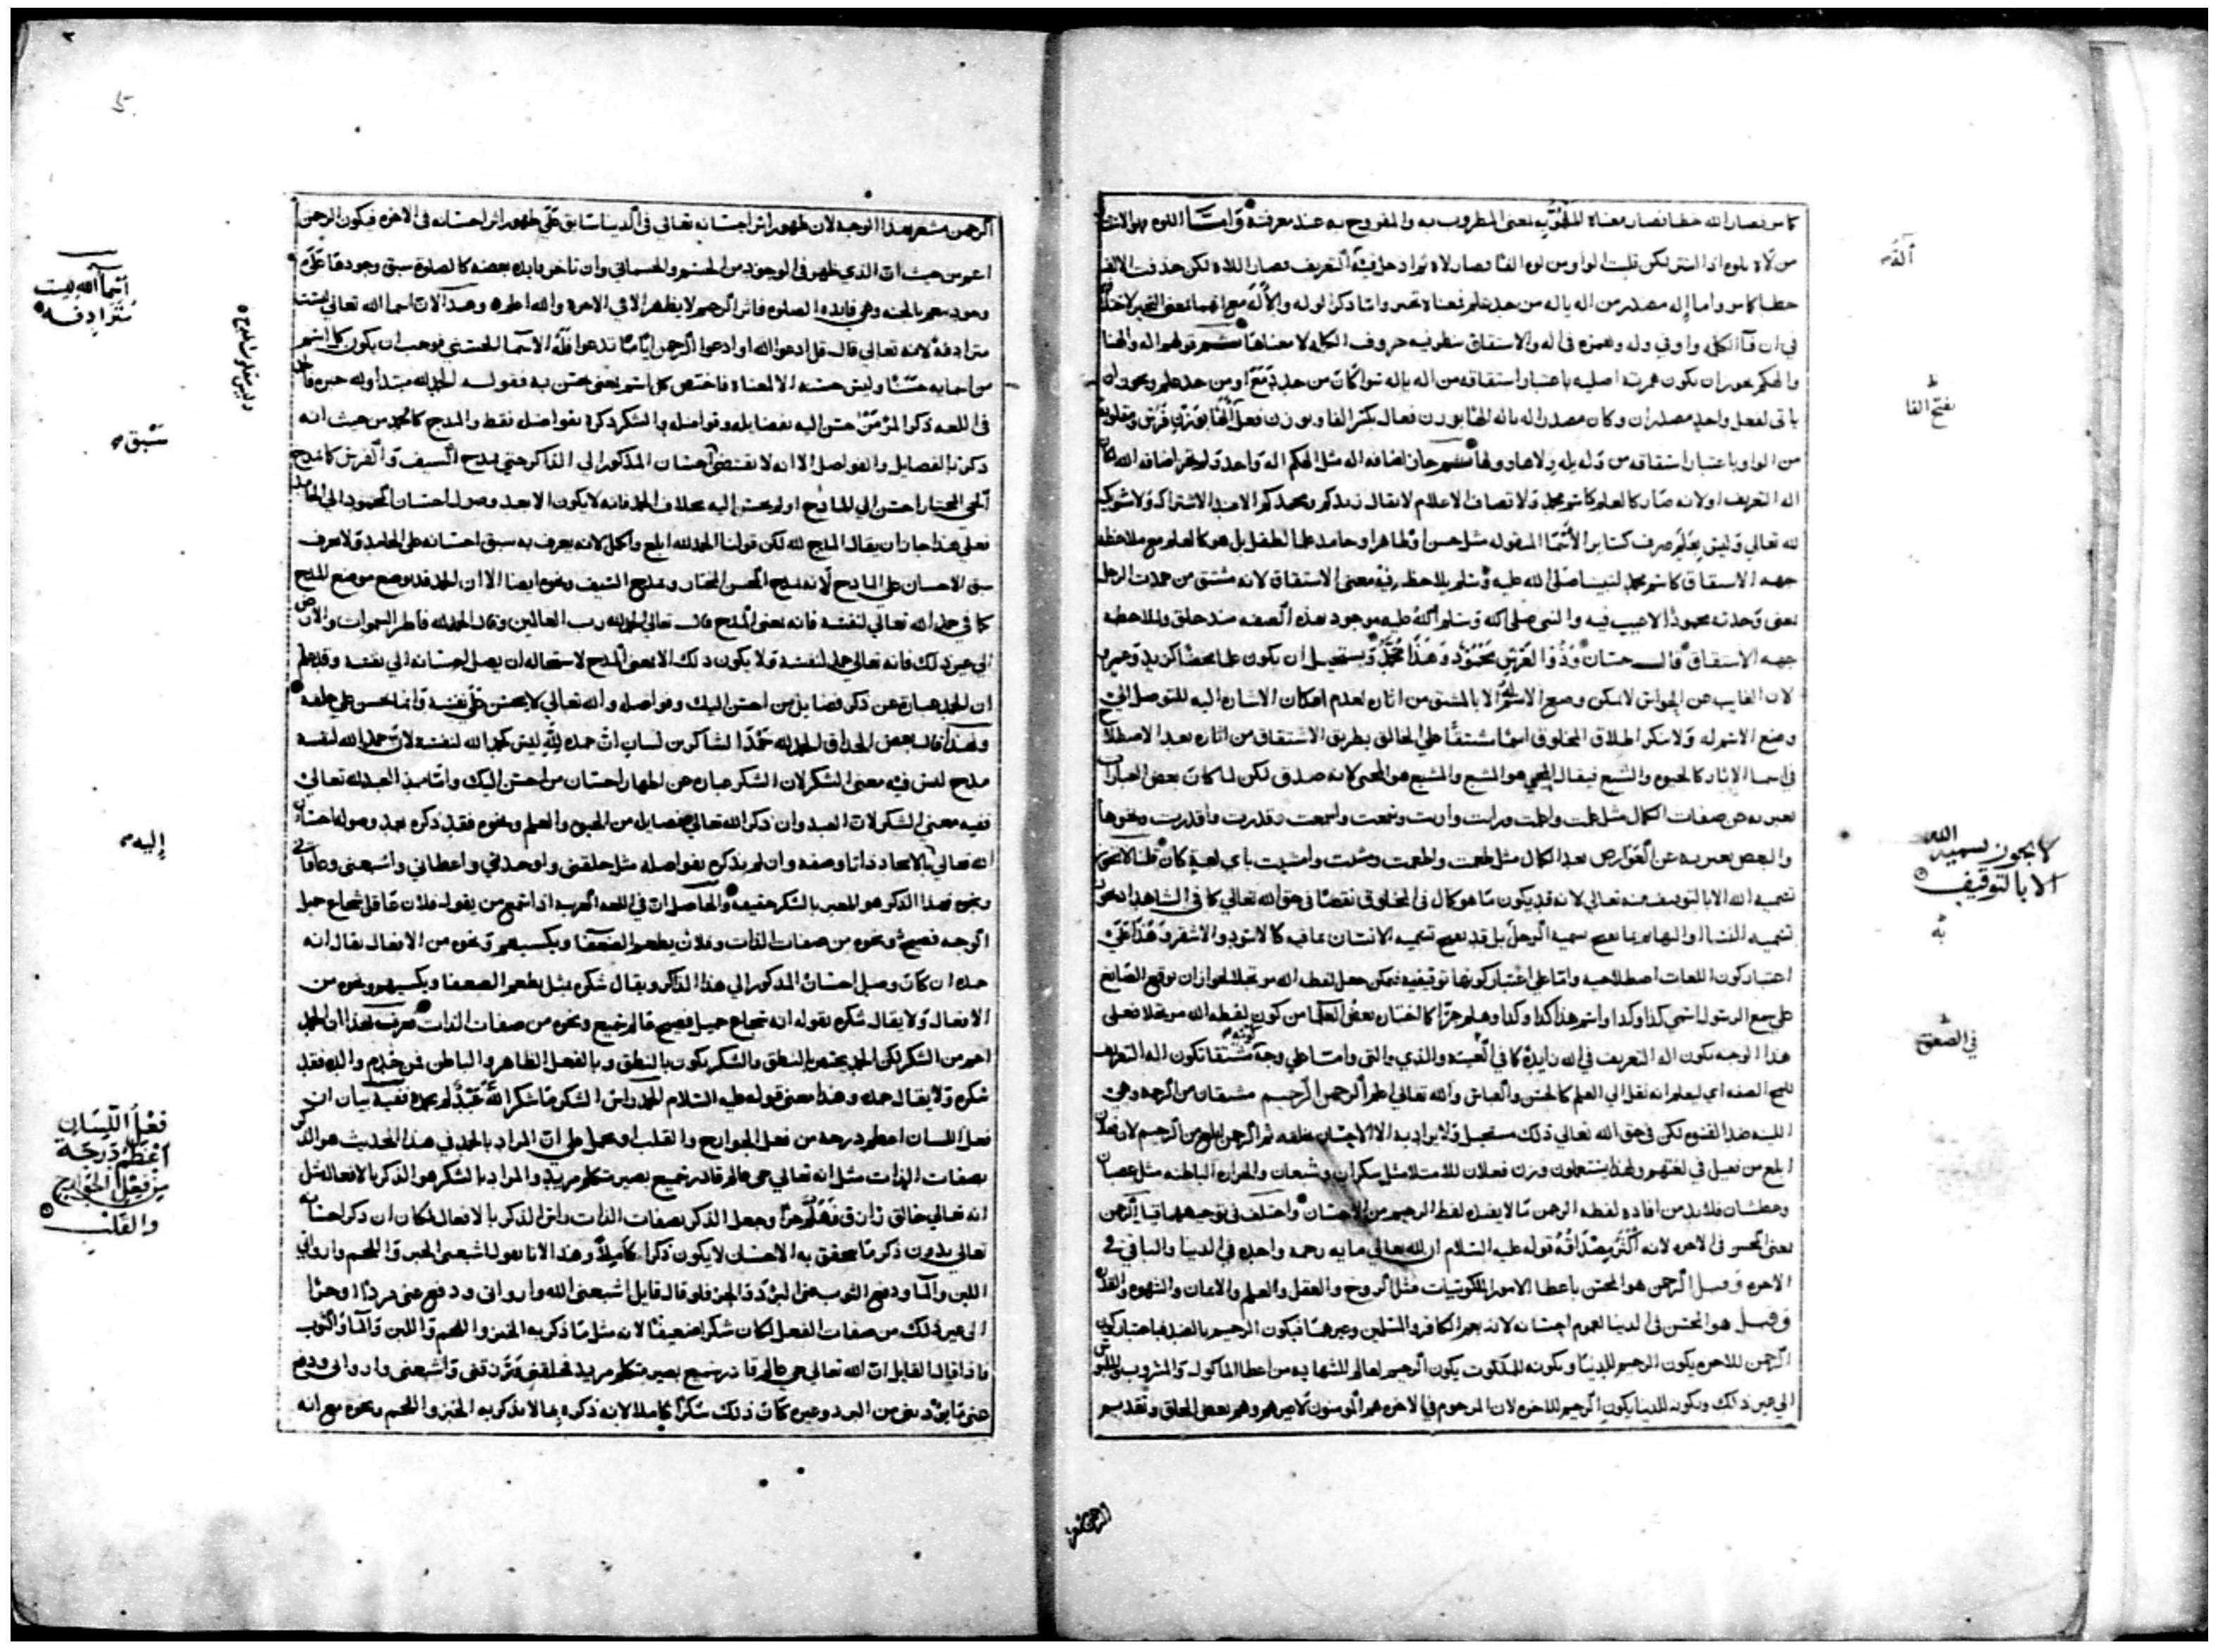 كما مر فصار الله خطا فصار معناه المطروب به والمفروح به عند معرفته واما اللوه
من لاه يلوه اذا استتر لكن قلبت الواو من لوه الفا فصار لاه ثم ادخل فيه التعريف فصار اللاه لكن حذفت الالف
خطا كما مر واما إله مصدر من اله ياله من حد علم فمعناه تحير
في ان فا الكل واو في وله وهمزه في اله والاشتقاق نظر فيه حروف الكلم لا معناها ثم قولهم اله والهنا
والهكم يجوز ان يكون همزته اصليه باعتبار اشتقاقه من اله ياله سوا كان من حد منع او من حد علم ويجوز ان
ياتي لفعل واحد مصدران وكان مصدر اله ياله الها بوزن فعال بكسر الفا وبوزن فعل
من الواو باعتبار اشتقاقه من وله يله ولاها وولها ثم جاز اضافه اله مثل الهكم اله واحد ولم يجز اضافه الله لان
اله التعريف اولانه صار كالعلم كاسم محمد ولا تضاف الاعلام لا يقال زيدكم ومحمدكم الا عند الاشتراك ولا شريك
لله تعالى وليس بعلم صرف كساير الاسما المنقوله مثل حسن او طاهر او حامد علما لطفل بل هو كالعلم مع ملاحظه
جهه الاشتقاق كاسم محمد لنبينا صلى الله عليه وسلم يلاحظ فيه معنى الاشتقاق لانه مشتق من حمدت الرجل
بمعنى وجدته محمودا لا عيب فيه والنبي صلى الله وسلم الله عليه موجود بهذه الصفه منذ خلق والملاحظه
جهه الاشتقاق قال حسان وذو العرش محمود وهذا محمد ويستحيل ان يكون علما محضا كزيد وغيره
لان الغايب عن الحواس لا يمكن وضع الاسم له الا بالمشتق من اثاره لعدم امكان الاشاره اليه للتوصل الى
وضع الاسم له ولا ينكر اطلاق المخلوق اسما مشتقا على الخالق بطريق الاشتقاق من اثاره بعد الاصطلاح
في اسما الاثار كالحيوه والشبع فيقال المحيي هو المشبع والمشبع هو المحيي لانه صدق لكن لما كان بعض العبارات
يعبر به عن صفات الكمال مثل علمت واعلمت ورايت واريت وسمعت واسمعت وقدرت واقدرت ونحوها
والبعض يعبر به عن العوارض بعد الكمال مثل طعمت واطعمت ومشيت وامشيت باي لغة كان قلنا لا يجوز
تسميه الله الا بالتوقيف منه تعالى لانه قد يكون ما هو كمال في المخلوق نقصا في حق الله تعالى كما في الشاهد
تسميه النسا والبهايم بما يصح تسميه الرجل بل قد يصح تسميه الانسان بما فيه كالاسود والاشقر وهذا على
اعتبار كون اللغات اصطلاحيه واما على اعتبار كونها توقيفيه فيمكن جعل لفظ الله مرتجلا لجواز ان يوقع الصانع
على سمع الرسول اسمي كذا وكذا واسم هذا كذا وكذا وهلم جرا كما اختار بعض العلما من كون لفظه الله مرتجلا فعلى
هذا الوجه يكون اله التعريف في الله زايدة كما في الذي والتي واما على وجه كونه مشتقا تكون اله التعريف
للمح الصفه اي ليعلم انه نقل الى العلم كالحسن والعباس والله تعالى اعلم الرحمن الرحيم مشتقان من الرحمه وهي
اللينه ضد القسوه لكن في حق الله تعالى ذلك مستحيل ولا يراد به الا الاحسان بخلقه ثم الرحمن ابلغ من الرحيم لان فعلان
ابلغ من فعيل في لغتهم ولهذا يستعملون وزن فعلان للامتلا مثل سكران وشبعان والحراره الباطنه مثل غضبان
وعطشان فلا بد من افاده لفظه الرحمن ما لا يفيد لفظ الرحيم من الاحسان واختلف في توجيههما فقيل الرحمن
بمعنى المحسن في الاخره لانه اكثر مصداقه قوله عليه السلام ان لله تعالى مايه رحمه واحده في الدنيا والباقي في
الاخره وقيل الرحمن هو المحسن باعطا الامور الملكوتيات مثل الروح والعقل والعلم والايمان والشهوه واللذه
وقيل هو المحسن في الدنيا لعموم احسانه لانه يعم الكافر والمسلمين وغيرهما فيكون الرحيم بالضد فباعتبار كون
الرحمن للاخره يكون الرحيم للدنيا وبكونه للملكوت يكون الرحيم لعالم الشهاده من اعطا الماكول والمشروب والملبوس
الى غير ذلك وبكونه للدنيا يكون الرحيم للاخره لان المرحوم في الاخره هم المومنون لا غيرهم وهم بعض الخلق وتقديم
الله
بفتح الفا
لا يجوز تسمية الله
الا بالتوقيف
به
في الصعق
الرحمن مشعر
الرحمن مشعر بهذا الوجه لان ظهور اثر احسانه تعالى في الدنيا سابق على ظهور اثر احسانه في الاخره فيكون الرحمن
اعم من حيث ان الذي ظهر في الوجود من الحسنى والجسماني وان تاخر فايده بعضه كالصلوة سبق وجودها على
وجود نعيم الجنه وهي فايده الصلوه فاثر الرحيم لا يظهر الا في الاخره والله اعلم وهذا لان اسما الله تعالى ليست
مترادفه لانه تعالى قال قل ادعوا الله او ادعوا الرحمن ايا ما تدعوا فله الاسما الحسنى فوجب ان يكون كل اسم
من اسمايه حسنا وليس حسنه الا لمعناه فاختص كل اسم بمعنى حسن به فقوله الحمد لله مبتدا وله خبره فالحمد
في اللغه ذكر المرء من احسن اليه بفضايله وفواضله والشكر ذكره بفواضله فقط والمدح كالحمد من حيث انه
ذكره بالفضايل والفواضل الا انه لا يقتضي احسان المذكور الى الذاكر حتى يمدح السيف والفرس كما يمدح
الحي المختار احسن الى المادح او لم يحسن اليه بخلاف الحمد فانه لا يكون الا بعد وصول احسان المحمود الى الحامد
فعلى هذا جاز ان يقال المدح لله لكن قولنا الحمد لله ابلغ واكمل لانه يعرف به سبق احسانه على الحامد ولا يعرف
سبق الاحسان على المادح لانه يمدح المحسن المختار ويمدح السيف ونحوه ايضا الا ان الحمد قد يوضع موضع المدح
كما في حمد الله تعالى لنفسه فانه بمعنى المدح قال تعالى الحمد لله رب العالمين وقال الحمد لله فاطر السموات والارض
الى غير ذلك فانه تعالى حمد لنفسه ولا يكون ذلك الا بمعنى المدح لاستحاله ان يصل احسانه الى نفسه وقد علم
ان الحمد عبارة عن ذكر فضايل من احسن اليك وفواضله والله تعالى لا يحسن على نفسه وانما يحسن على خلقه
ولهذا قال بعض الحذاق الحمد لله حمد الشاكرين لسان ان حمده لله ليس كحمد الله لنفسه لان حمد الله لنفسه
مدح ليس فيه معنى الشكر لان الشكر عباره عن اظهار احسان من احسن اليك واما حمد العبد لله تعالى
ففيه معنى الشكر لان العبد وان ذكر الله تعالى بفضايله من الحيوه والعلم ونحوه فقد ذكره بعد وصوله احسان
الله تعالى بالايجاد ذاتا وصفه وان لم يذكره بفواضله مثل خلقني واوجدني واعطاني واشبعني وعافاني
ونحوه فهذا الذكر هو المعبر بالشكر حقيقه والحاصل ان في اللغه العربيه اذا سمع من يقول فلان عاقل شجاع جميل
الوجه فصيح ونحوه من صفات الذات وفلان يطعم الضعفا ويكسيهم ونحوه من الافعال يقال انه
حمده ان كان وصل احسان المذكور الى هذا الذاكر ويقال شكره بمثل يطعم الضعفا ويكسيهم ونحوه من
الافعال ولا يقال شكره بقوله انه شجاع جميل فصيح عالم سميع ونحوه من صفات الذات فعرف بهذا ان الحمد
اعم من الشكر لكن الحمد يختص بالنطق والشكر يكون بالنطق وبالفعل الظاهر والباطن فمن خدم والديه فقد
شكره ولا يقال حمده وهذا معنى قوله عليه السلام الحمد راس الشكر ما شكر الله عبد لم يحمده ففيه بيان ان
فعل اللسان اعظم درجه من فعل الجوارح والقلب او يحمل على ان المراد بالحمد في هذا الحديث هو الذكر
بصفات الذات مثل انه تعالى حي عالم قادر سميع بصير متكلم مريد والمراد بالشكر هو الذكر بالافعال مثل
انه تعالى خالق رازق فهلم جرا وجعل الذكر بصفات الذات راس الذكر بالافعال لمكان ان ذكر احسانه
تعالى بدون ذكر ما يتحقق به الاحسان لا يكون ذكرا كاملا وهذا لانا نقول اشبعني الخبز واللحم وارواني
اللبن والما ودفع الثوب عني البرد والحر فلو قال قايل اشبعني الله وارواني ودفع عني بردا وحرا
الى غير ذلك من صفات الفعل لكان شكرا ضعيفا لانه مثل ما ذكر به الخبز واللحم واللبن والما والثوب
فاذا قال القايل ان الله تعالى حي عالم قادر سميع بصير متكلم مريد خلقني ورزقني واشبعني وارواني ودفع
عني ما يؤذيني من البرد وغيره كان ذلك شكرا كاملا لانه ذكره بما لا يذكر به الخبز واللحم ونحوه مع انه
أسما الله ليست
مترادفه
سبق
إليه
فعل اللسان
أعظم درجة
من فعل الجوارح
والقلب